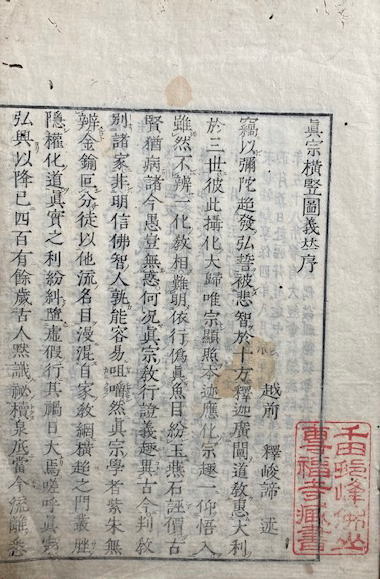 眞宗橫豎圖義序
越前　釋峻諦　述
竊以彌陀超發弘誓被悲智於十方釋迦廣闡道敎惠大利
於三世彼此攝化大歸唯宗顯照本迹應化宗趣一仰悟入
雖然不辨一化敎相難明依行僞眞魚目紛玉燕石誣價古
賢猶病諸今愚豈無惑何况眞宗敎行證義趣異古今判敎
別諸家非明信佛智人孰能容易咀嚼然眞宗學者素朱無
辨金鍮叵分徒以他流名目漫混自家敎網橫超之門叢脞
隱權化道眞實之利紛糾墮虛假行其禍日大焉嗟呼眞宗
弘興以降已四百有餘歲古人默識祕櫝泉底當今流離悉
專福寺藏書